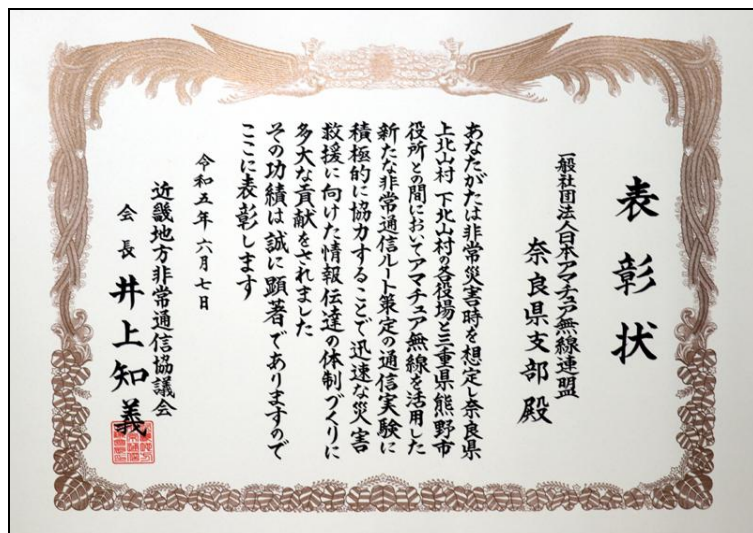 表彰状
一般社団法人日本アマチュア無線連盟
奈良県支部殿
あなたがたは非常災害時を想定し奈良県
上北山村 下北山村の各役場と三重県熊野市
役所との間においてアマチュア無線を活用した
新たな非常通信ルート策定の通信実験に
積極的に協力することで迅速な災害
救援に向けた情報伝達の体制づくりに
多大な貢献をされました
その功績は誠に顕著でありますので
ここに表彰します
令和五年六月七日
近畿地方非常通信協議会
会長 井上知義